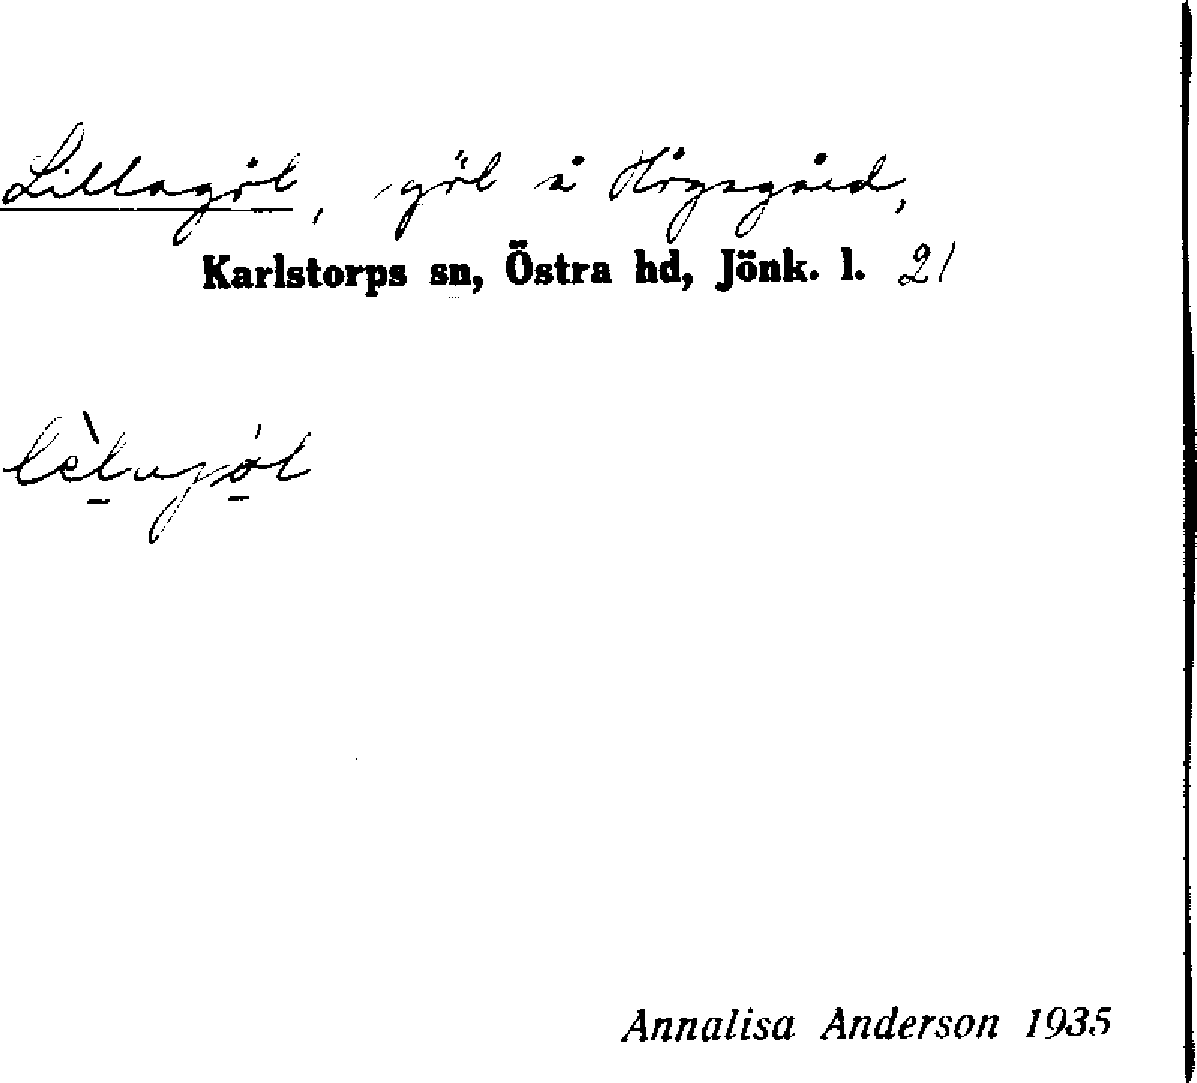 Lillagöl, göl å Högsgård,
Karlstorps sn, Östra hd, Jönk. l. 21
Annalisa Anderson 1935